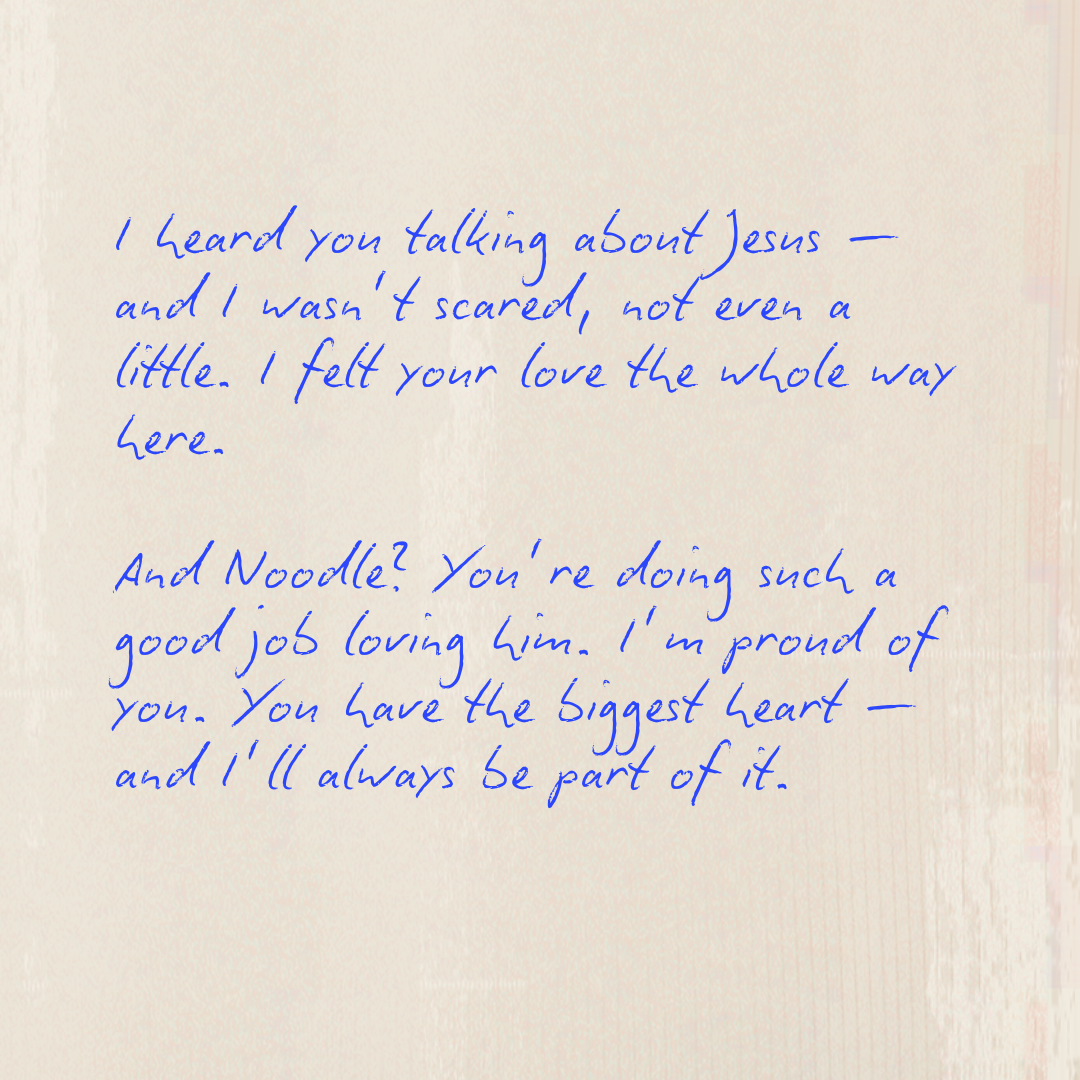 I heard you talking about Jesus —
and I wasn't scared, not even a
little. I felt your love the whole way
here.
And Noodle? You're doing such a
good job loving him. I'm proud of
you. You have the biggest heart —
and I'll always be part of it.